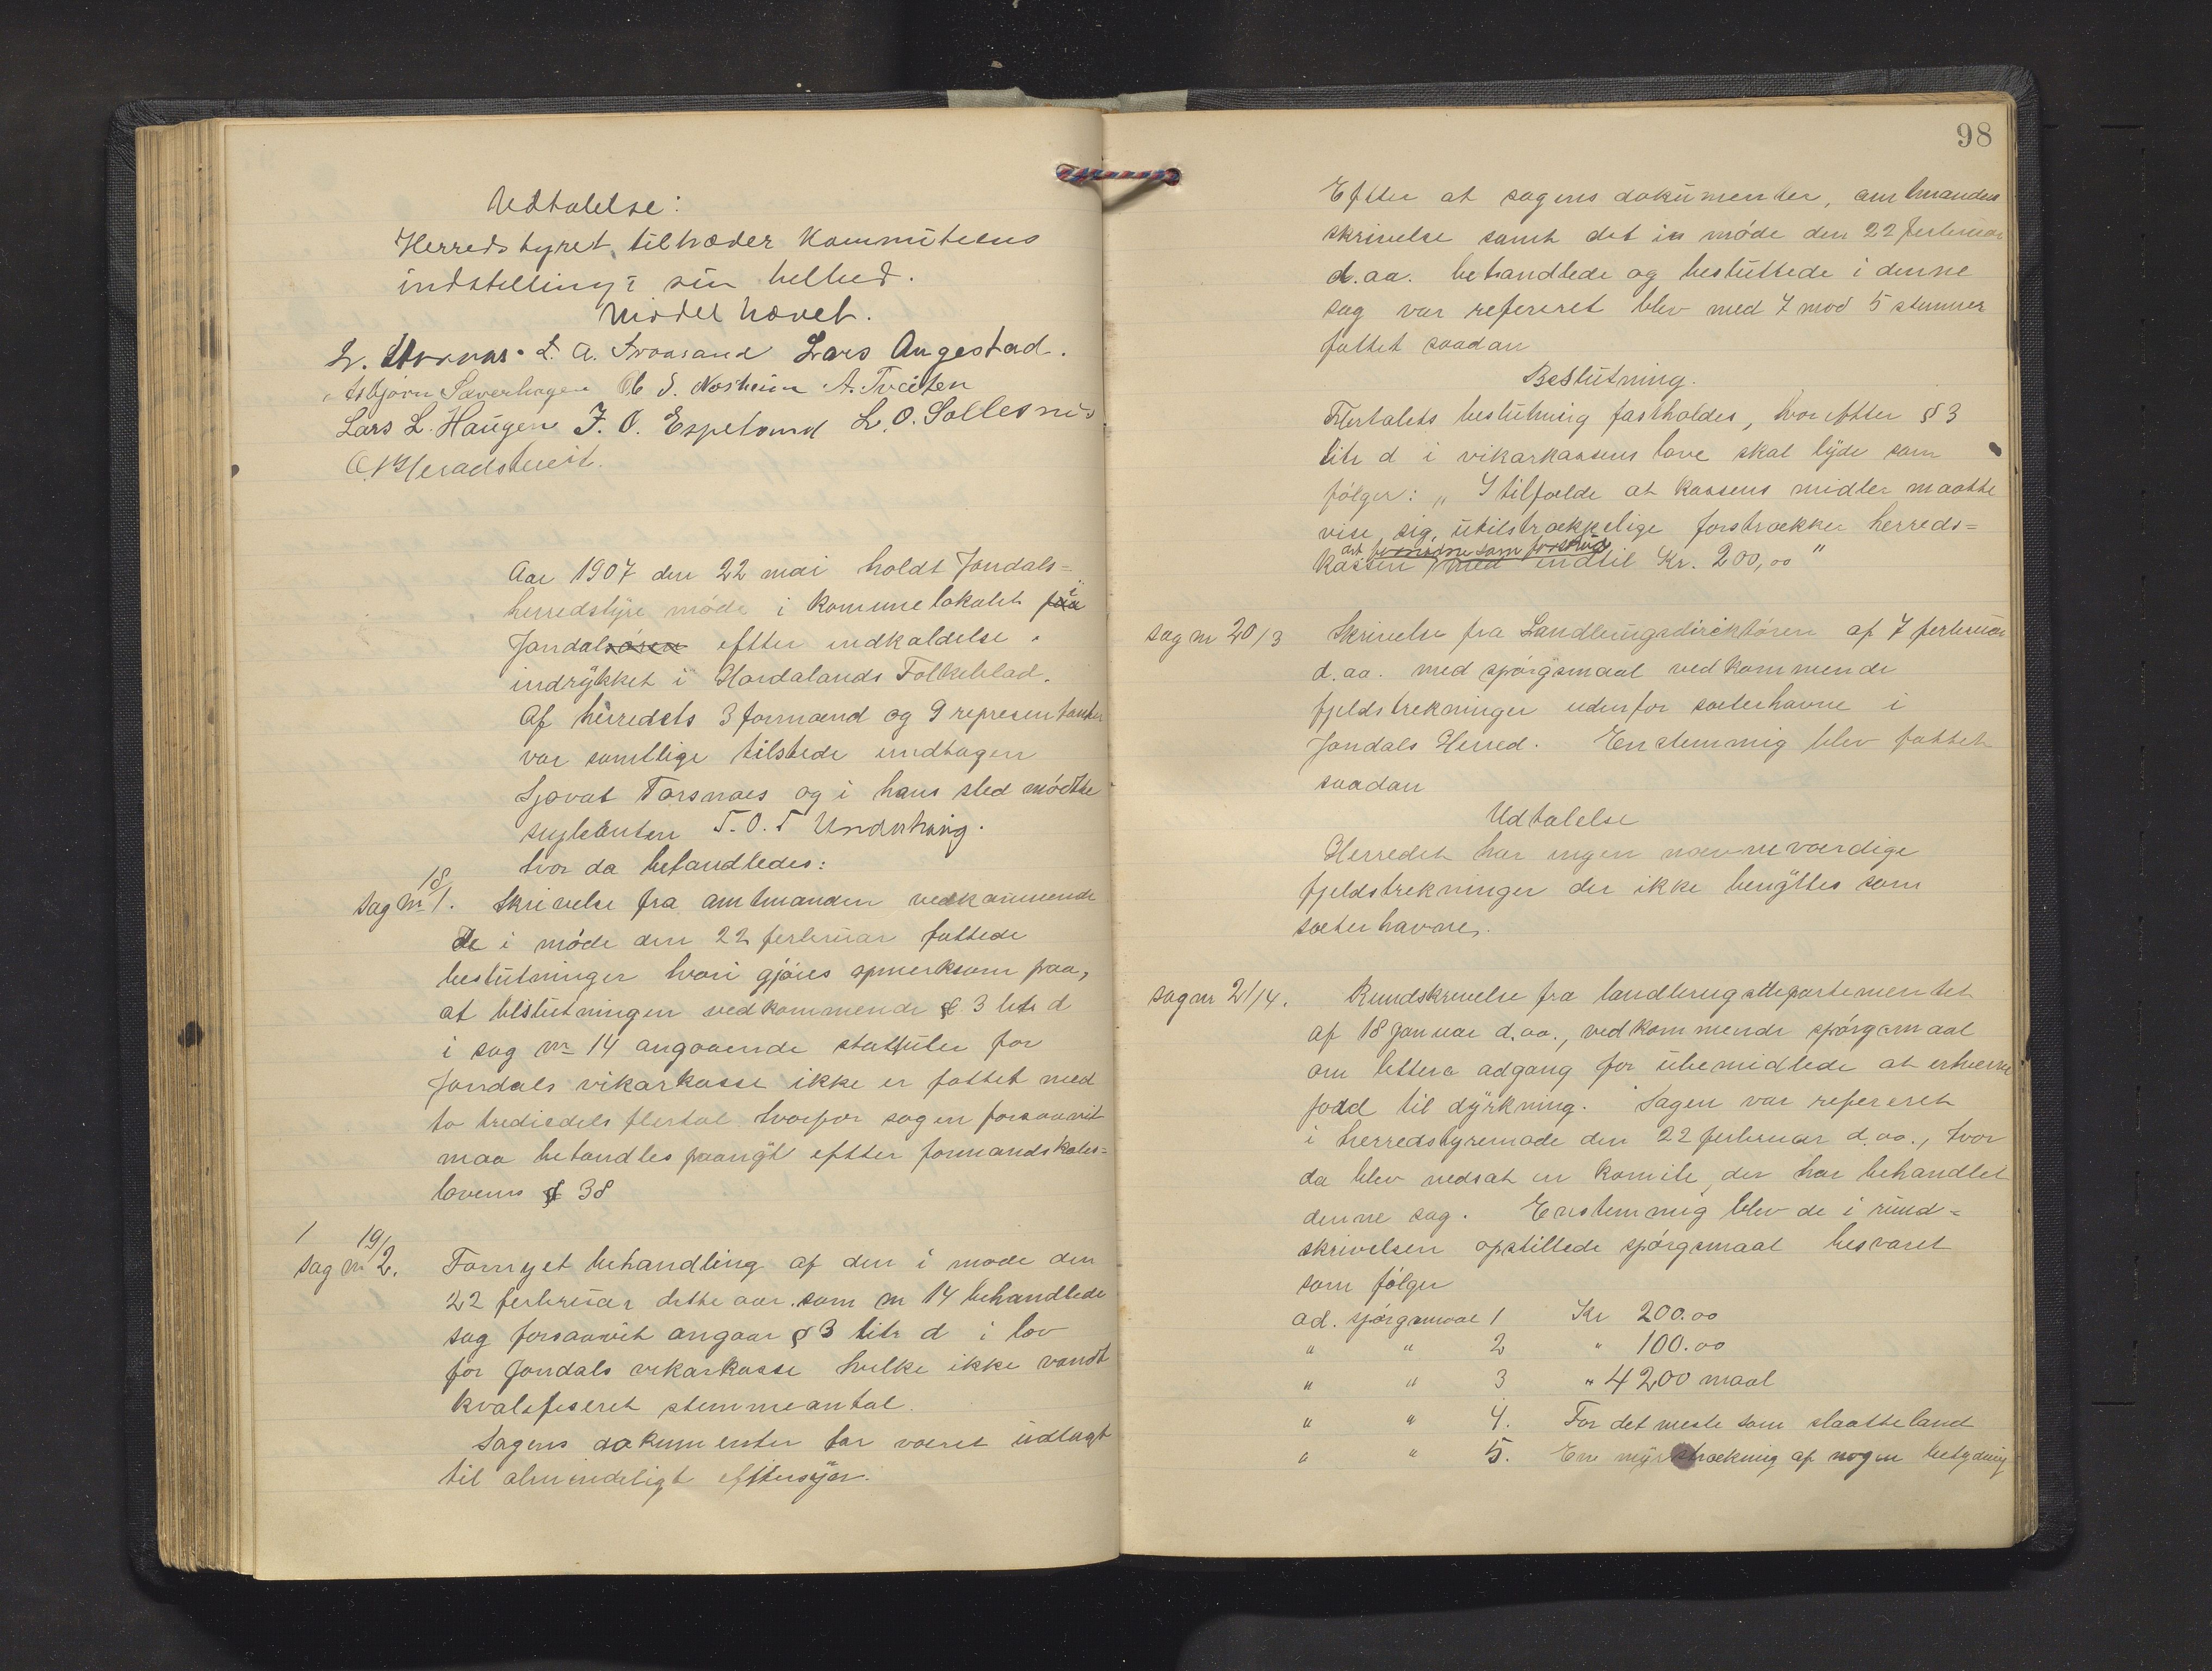 Udtalelse:
Herredstyret tiltræder Kommiteens
indstilling i sin helhed.
Mødet hævet.
L. A. Traasand Lars Augestad.
Asbjørn Sæverhagen S. Nosheim A. Tveiten
Lars L. Haugen J. O. Espeland L. O. Sollesnes
O. Heradstveit.
Aar 1907 den 22 mai holdt Jondals=
herredstyre møde i komunelokalet paa i
Jondalsøren efter indkaldelse
indrykket i Hordalands Folkeblad.
Af herredets 3 formænd og 9 representanter
var samtlige tilstede undtagen
Sjovat Torsnæs og i hans sted mødte
suplanten T. O. T Underhaug.
hvor da behandledes:
18/
Sag nr 1. Skrivelse fra amtmanden vedkommende
de i møde den 22 ferbruar fattede
beslutninger hvori gjøres opmerksom paa,
at beslutningen vedkommende § 3 litr d
i sag nr 14 angaaende statuter for
Jondals vikarkasse ikke er fattet med
to trediedels flertal hvorfor sagen forsaavit
maa behandles paanyt efter formandskabs=
lovens § 38
1 19/
Sag nr 2. Fornyet behandling af den i møde den
22 ferbruar dette aar som nr 14 behandlede
sag forsaavit angaar § 3 litr d i lov
for Jondals vikarkasse hvilke ikke vandt
kvalifiseret stemmeantal.
Sagens dokumenter har været udlagt
til almindeligt eftersyn.
98
Efter at sagens dokumenter, amtmandens
skrivelse samt det in møde den 22 ferbruar
d.aa. behandlede og besluttede i denne
sag var refereret blev med 7 mod 5 stemmer
fattet saadan
Beslutning.
Flertalets beslutning fastholdes, hvorefter § 3
litr d i vikarkassens love skal lyde som
følger: „ I tilfælde at kassens midler maatte
vise sig utilstrækkelige forstrækker herreds=
det fornødne som forskud
kassen med indtil Kr. 200,00 "
Sag nr 20/3 Skrivelse fra Landbrugsdirektøren af 7 ferbruar
d.aa. med spørgsmaal vedkommende
fjeldstrekninger udenfor sæterhavne i
Jondals Herred. Enstemmig blev fattet
saadan
Udtalelse
Herredet har ingen nævneværdige
fjeldstrekninger der ikke benyttes som
sæterhavne.
Sag nr 21/4. Rundskrivelse fra landbrugsdepartementet
af 18 januar d.aa., vedkommende spørgsmaal
om lettere adgang for ubemidlede at erhverve
jord til dyrkning. Sagen var refereret
i herredstyremøde den 22 ferbruar d.aa., hvor
da blev nedsat en komite, der har behandlet
denne sag. Enstemmig blev de i rund=
skrivelsen opstillede spørgsmaal besvaret
som følger
ad. spørgsmaal 1 Kr 200.00
" " 2 " 100.00
" " 3 " 4200 maal
" " 4. For det meste som slaatteland
" " 5. En myrstrækning af nogen betydning